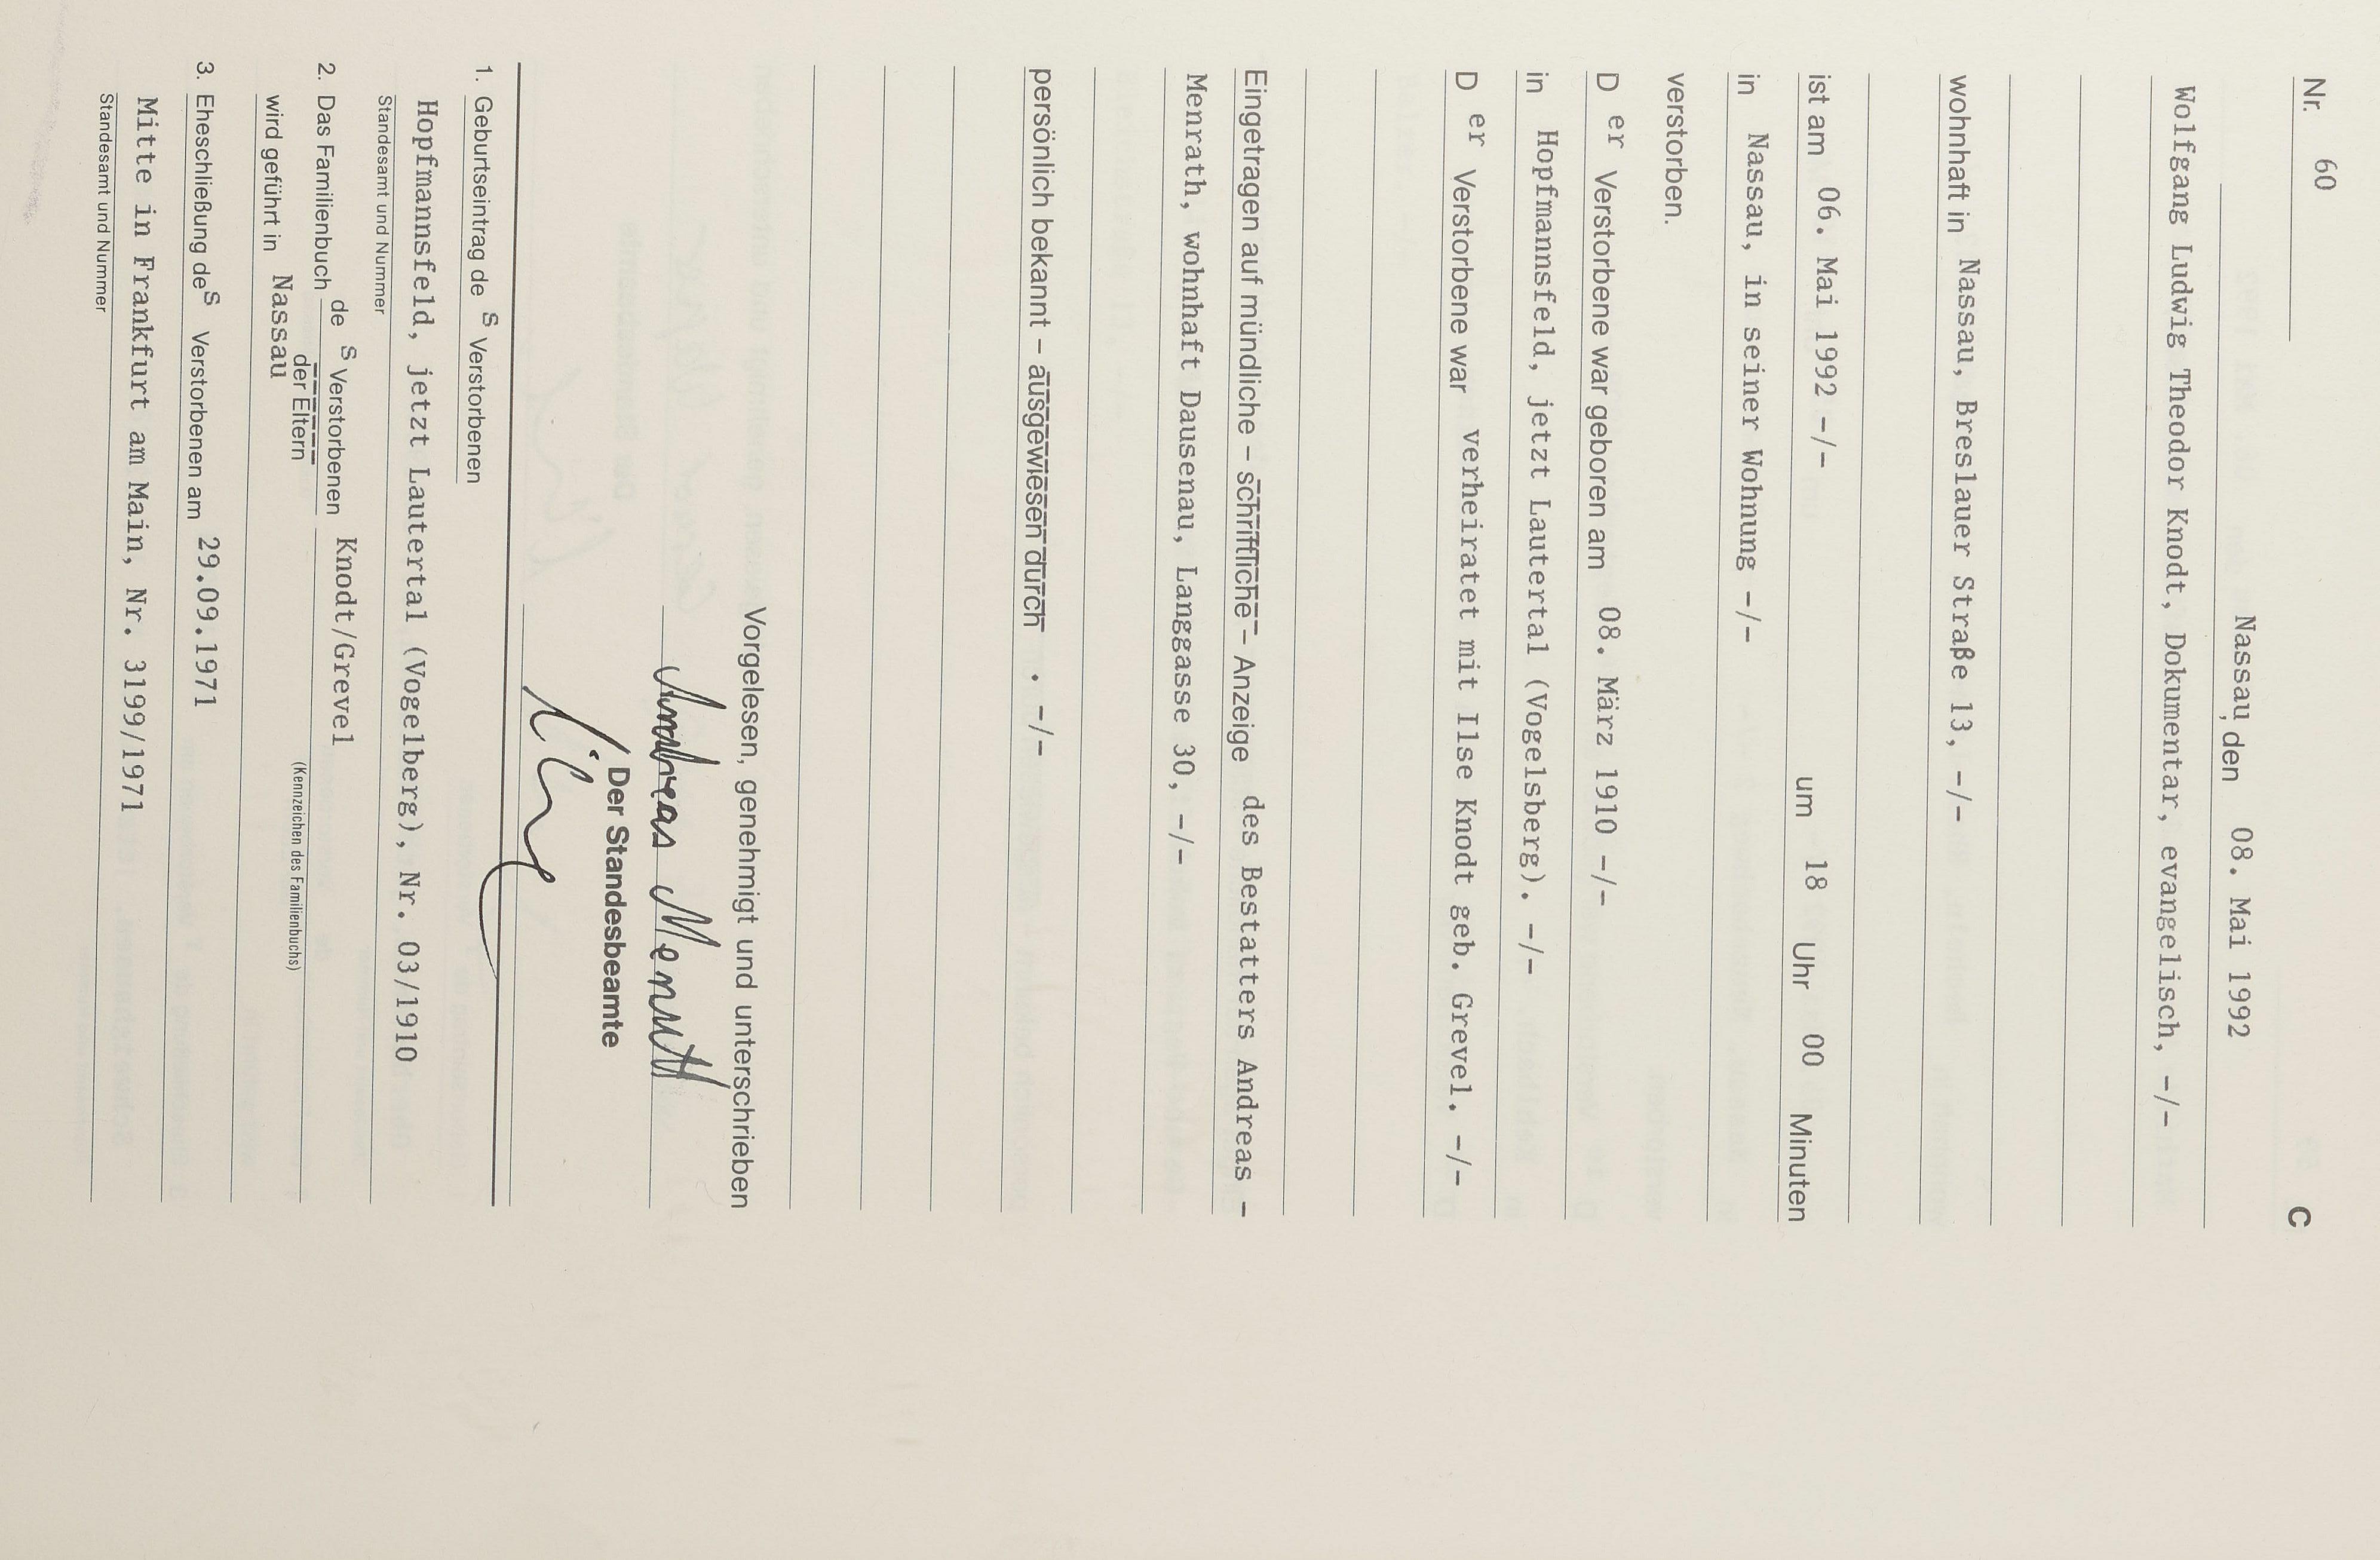 Nr. 60 C
Nassau, den 08. Mai 1992
Wolfgang Ludwig Theodor Knodt, Dokumentar, evangelisch, -/-
wohnhaft in Nassau, Breslauer Straße 13, -/-
ist am 06. Mai 1992 -/- um 18 Uhr 00 Minuten
in Nassau, in seiner Wohnung -/-
verstorben.
D er Verstorbene war geboren am 08. März 1910 -/-
in Hopfmannsfeld, jetzt Lautertal (Vogelsberg). -/-
D er Verstorbene war verheiratet mit Ilse Knodt geb. Grevel. -/-
Eingetragen auf mündliche – schriftliche – Anzeige des Bestatters Andreas -
Menrath, wohnhaft Dausenau, Langgasse 30, -/-
persönlich bekannt – ausgewiesen durch . -/-
Vorgelesen, genehmigt und unterschrieben
Andreas Menrath
Der Standesbeamte
1. Geburtseintrag de s Verstorbenen
Hopfmannsfeld, jetzt Lautertal (Vogelberg), Nr. 03/1910
Standesamt und Nummer
2. Das Familienbuch de s Verstorbenen Knodt/Grevel
der Eltern (Kennzeichen des Familienbuchs)
wird geführt in Nassau
3. Eheschließung des Verstorbenen am 29.09.1971
Mitte in Frankfurt am Main, Nr. 3199/1971
Standesamt und Nummer